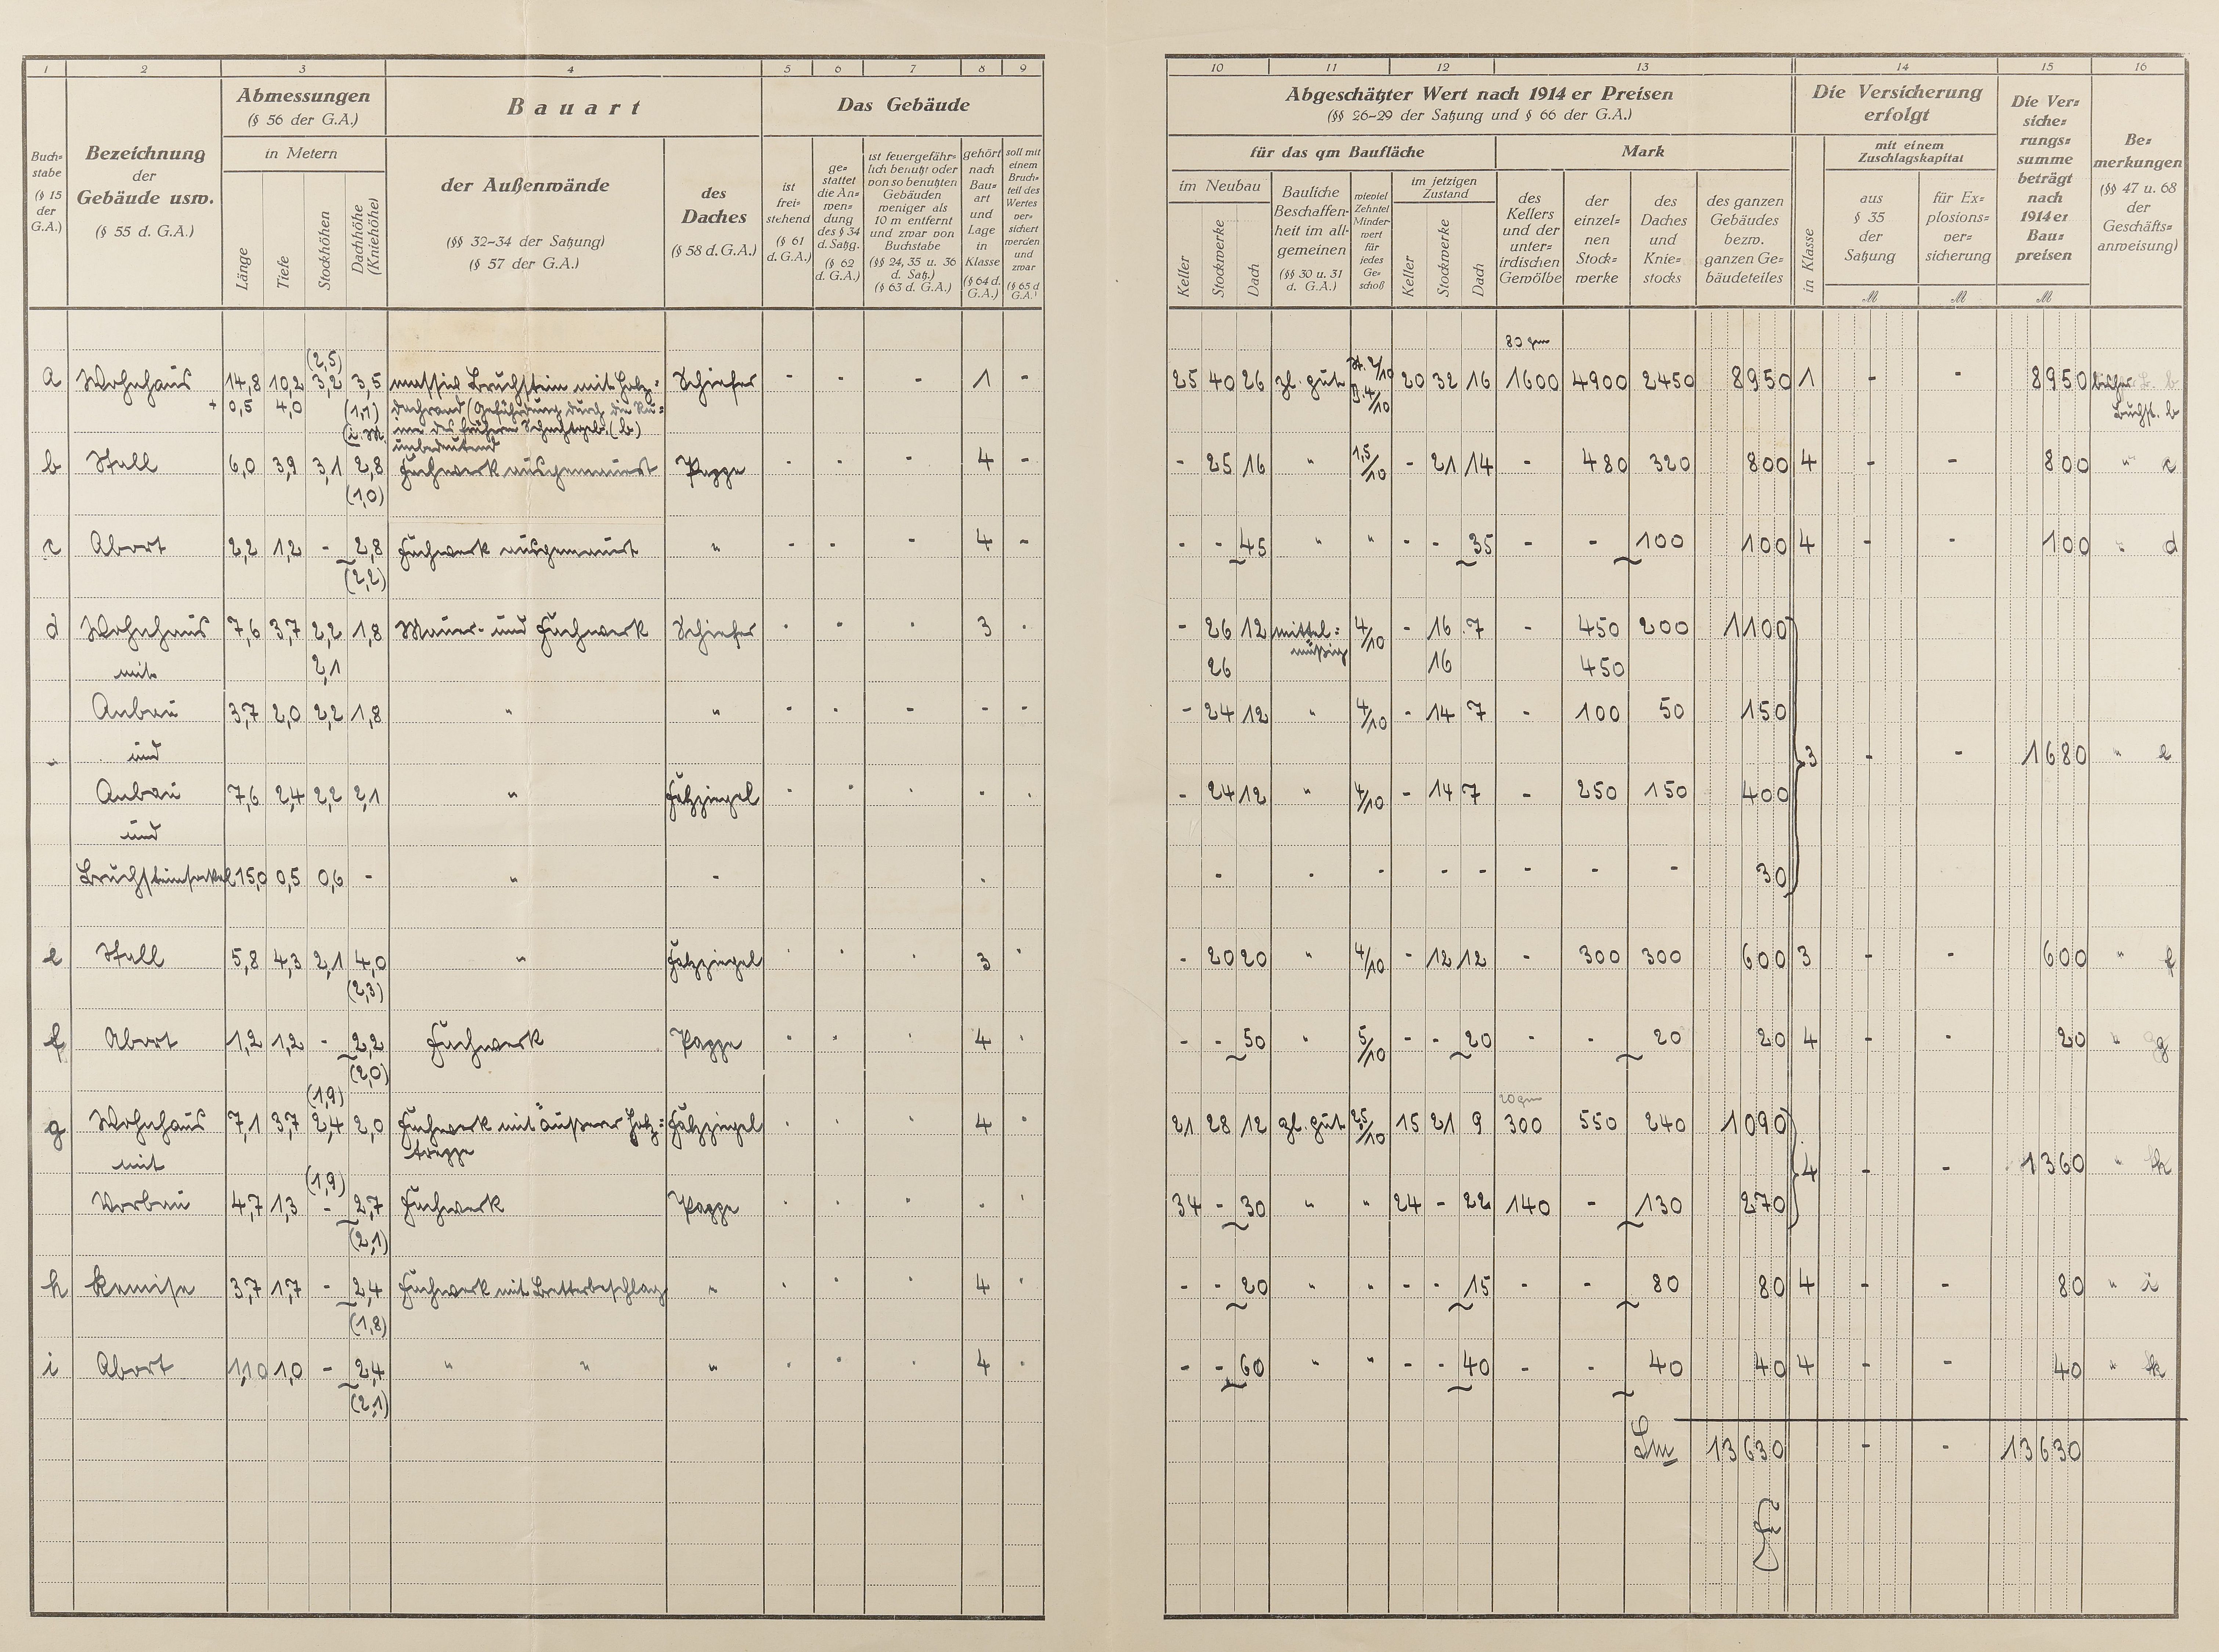 1 2 3 4 5 6 7 8 9
Abmessungen
(§ 56 der G.A.)
Bauart
Das Gebäude
Buch-
stabe
(§ 15
der
G.A.)
Bezeichnung
der
Gebäude usw.
(§ 55 d. G.A.)
in Metern
Länge
Tiefe
Stockhöhen
Dachhöhe
(Kniehöhe)
der Außenwände
(§§ 32-34 der Satzung)
(§ 57 der G.A.)
des
Daches
(§ 58 d. G.A.)
ist
frei=
stehend
(§ 61
d. G.A.)
ge=
stattet
die An=
wen=
dung
des § 34
d. Satzg.
(§ 62
d. G.A.)
ist feuergefähr=
lich benutzt oder
von so benutzten
Gebäuden
weniger als
10 m entfernt
und zwar von
Buchstabe
(§§ 24, 35 u. 36
d. Satz.)
(§ 63 d. G.A.)
gehört
nach
Bau=
art
und
Lage
in
Klasse
(§ 64 d.
G.A.)
soll mit
einem
Bruch=
teil des
Wertes
ver=
sichert
werden
und
zwar
(§ 65 d
G.A.)
(2,5)
a Wohnhaus 14,8 10,2 3,2 3,5 massiv Bruchstein mit Holz= Schiefer - - - 1 -
+ 0,5 4,0 (1,1) dachrand (Gefährdung durch die Rui=
(i. M. ne des frühern Schachtgeb. (b)
unbedeutend
b Stall 6,0 3,9 3,1 2,8 Fachwerk ausgemauert Pappe - - - 4 -
(1,0)
c Abort 2,2 1,2 - 2,8 Fachwerk ausgemauert " - - - 4 -
(2,2)
d Wohnhaus 7,6 3,7 2,2 1,8 Mauer- und Fachwerk Schiefer - - - 3 -
mit 2,1
Anbau 3,7 2,0 2,2 1,8 " " - - - - -
und
Anbau 7,6 2,4 2,2 2,1 " Falzziegel - - - - -
und
Bruchsteinsockel 15,0 0,5 0,6 - " - -
e Stall 5,8 4,3 2,1 4,0 " Falzziegel - - - 3 -
(2,3)
f Abort 1,2 1,2 - 2,2 Fachwerk Pappe - - - 4 -
(2,0)
(1,9)
g Wohnhaus 7,1 3,7 2,4 2,0 Fachwerk mit äußerer Holz= Falzziegel - - - 4 -
mit treppe
(1,9)
Vorbau 4,7 1,3 - 2,7 Fachwerk Pappe - - - - -
(2,1)
h Remise 3,7 1,7 - 2,4 Fachwerk mit Bretterbeschlag " - - - 4 -
(1,8)
i Abort 1,10 1,0 - 2,4 " " " - - - 4 -
(2,1)
10 11 12 13 14 15 16
Abgeschätzter Wert nach 1914 er Preisen
(§§ 26-29 der Satzung und § 66 der G.A.)
für das qm Baufläche
Mark
im Neubau
Keller
Stockwerke
Dach
Bauliche
Beschaffen-
heit im all-
gemeinen
(§§ 30 u. 31
d. G.A.)
wieviel
Zehntel
Minder-
wert
für
jedes
Ge-
schoß
im jetzigen
Zustand
Keller
Stockwerke
Dach
des
Kellers
und der
unter=
irdischen
Gewölbe
der
einzel=
nen
Stock=
werke
des
Daches
und
Knie=
stocks
des ganzen
Gebäudes
bezw.
ganzen Ge=
bäudeteiles
Die Versicherung
erfolgt
in Klasse
mit einem
Zuschlagskapital
aus
§ 35
der
Satzung
M
für Ex=
plosions=
ver=
sicherung
M
Die Ver=
siche=
rungs=
summe
beträgt
nach
1914 er
Bau=
preisen
M
Be=
merkungen
(§§ 47 u. 68
der
Geschäfts=
anweisung)
80 qm
25 40 26 zl. gut St. 2/10 20 32 16 1600 4900 2450 8950 1 - - 8950 bisher
D. 4/10 Buchst. b
- 25 16 " 1,5/10 - 21 14 - 480 320 800 4 - - 800 " c
- - 45 " " - - 35 - - 100 100 4 - - 100 " d
- 26 12 mittel= 4/10 - 16 7 - 450 200 1100
26 mäßig 16 450
- 24 12 " 4/10 - 14 7 - 100 50 150
3 - - 1680 " e
- 24 12 " 4/10 - 14 7 - 250 150 400
- - - - - - - - 30
- 20 20 " 4/10 - 12 12 - 300 300 600 3 - - 600 " f
- - 50 " 5/10 - - 20 - - 20 20 4 - - 20 " g
20 qm
21 28 12 zl. gut 2,5/10 15 21 9 300 550 240 1090
4 - - 1360 " h
34 - 30 " " 24 - 22 140 - 130 270
- - 20 " " - - 15 - - 80 80 4 - - 80 " i
- - 60 " " - - 40 - - 40 40 4 - - 40 " k
13630 - - 13630